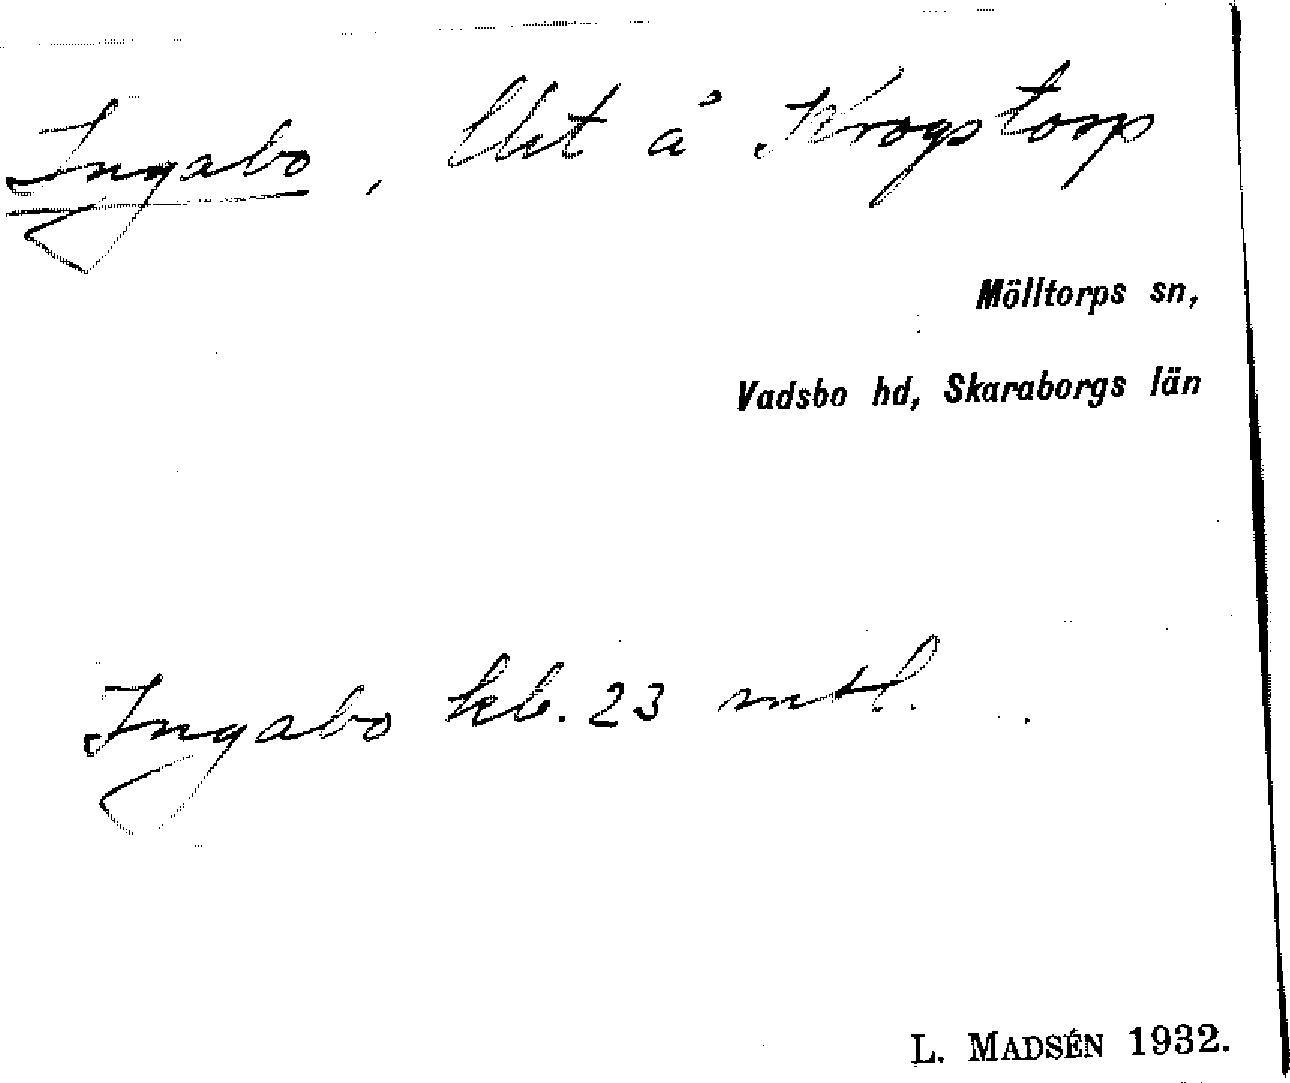 Ingabo, lht å Krogstorp
Mölltorps sn,
Vadsbo hd, Skaraborgs län
Ingabo hlb. 23 mtl.
L. MADSÉN 1932.